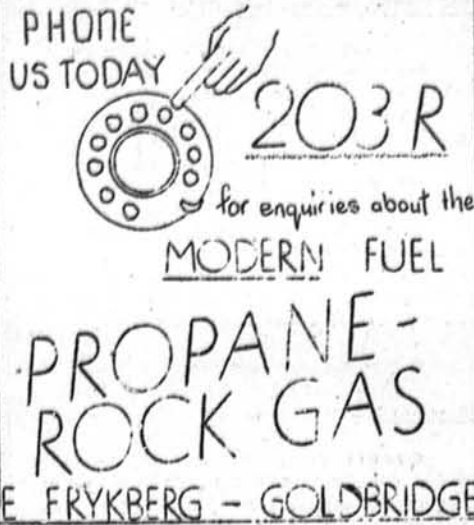 PHONE
US TODAY
203 R
for enquiries about the
MODERN FUEL
PROPANE-
ROCK GAS
E FRYKBERG - GOLDBRIDGE